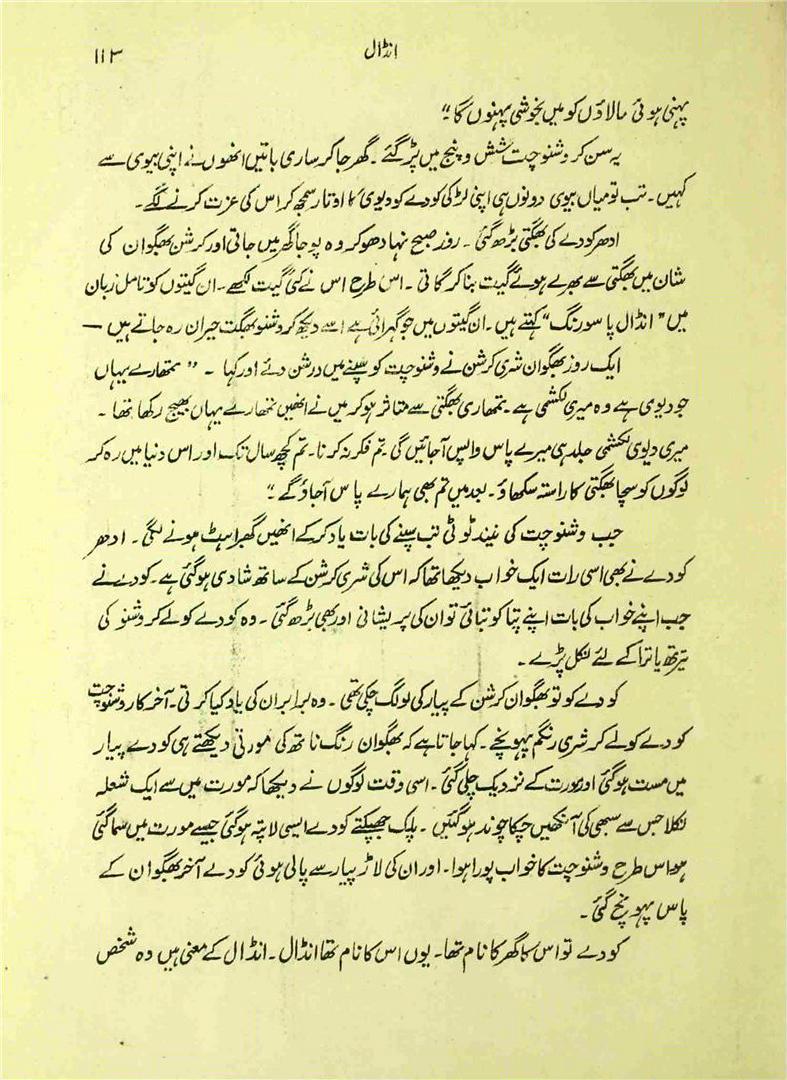 انڈال ۱۱۳
پہنی ہوئی مالاؤں کو میں بخوشی پہنوں گا۔"
یہ سن کر وشنوچت شش و پنج میں پڑ گئے۔ گھر جا کر ساری باتیں انھوں نے اپنی بیوی سے
کہیں۔ تب تو میاں بیوی دونوں ہی اپنی لڑکی کودے کو دیوی کا اوتار سمجھ کر اس کی عزت کرنے لگے۔
ادھر کودے کی بھگتی بڑھ گئی۔ روز صبح نہا دھو کر وہ پوجا گھر میں جاتی اور کرشن بھگوان کی
شان میں بھگتی سے بھرے ہوئے گیت بنا کر گاتی۔ اس طرح اس نے کئی گیت لکھے۔ ان گیتوں کو تامل زبان
میں "انڈال پاسورنگ" کہتے ہیں۔ ان گیتوں میں جو گہرائی ہے اسے دیکھ کر وشنو بھگت حیران رہ جاتے ہیں —
ایک روز بھگوان شری کرشن نے وشنوچت کو سپنے میں درشن دئے اور کہا ۔ "تمھارے یہاں
جو دیوی ہے وہ میری لکشمی ہے۔ تمھاری بھگتی سے متاثر ہو کر میں نے انھیں تمھارے یہاں بھیج رکھا تھا ۔
میری دیوی لکشمی جلد ہی میرے پاس واپس آجائیں گی۔ تم فکر نہ کرنا۔ تم کچھ سال تک اور اس دنیا میں رہ کر
لوگوں کو سچا بھگتی کا راستہ سکھاؤ۔ بعد میں تم بھی ہمارے پاس آجاؤ گے۔"
جب وشنوچت کی نیند ٹوٹی تب سپنے کی بات یاد کر کے انھیں گھبراہٹ ہونے لگی۔ ادھر
کودے نے بھی اسی رات ایک خواب دیکھا تھا کہ اس کی شری کرشن کے ساتھ شادی ہو گئی ہے۔ کودے نے
جب اپنے خواب کی بات اپنے پتا کو بتائی تو ان کی پریشانی اور بھی بڑھ گئی۔ وہ کودے کو لے کر وشنو کی
تیرتھ یاترا کے لئے نکل پڑے۔
کودے کو تو بھگوان کرشن کے پیار کی لو لگ چکی تھی۔ وہ برابر ان کی یاد کیا کرتی۔ آخر کار وشنوچت
کودے کو لے کر شری رنگم پہونچے۔ کہا جاتا ہے کہ بھگوان رنگ ناتھ کی مورتی دیکھتے ہی کودے پیار
میں مست ہو گئی اور مورت کے نزدیک چلی گئی۔ اسی وقت لوگوں نے دیکھا کہ مورت میں سے ایک شعلہ
نکلا جس سے سبھی کی آنکھیں چکا چوند ہو گئیں۔ پلک جھپکتے کودے ایسی لاپتہ ہو گئی جیسے مورت میں سما گئی
ہو اس طرح وشنوچت کا خواب پورا ہوا۔ اور ان کی لاڑ پیار سے پالی ہوئی کودے آخر بھگوان کے
پاس پہونچ گئی۔
کودے تو اس کا گھر کا نام تھا۔ یوں اس کا نام تھا انڈال۔ انڈال کے معنی ہیں وہ شخص